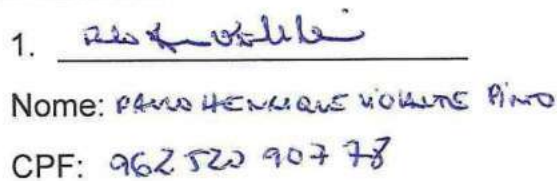 1.
Nome: PAULO HENRIQUE VIOLANTE PINTO
CPF: 962 520 907 78